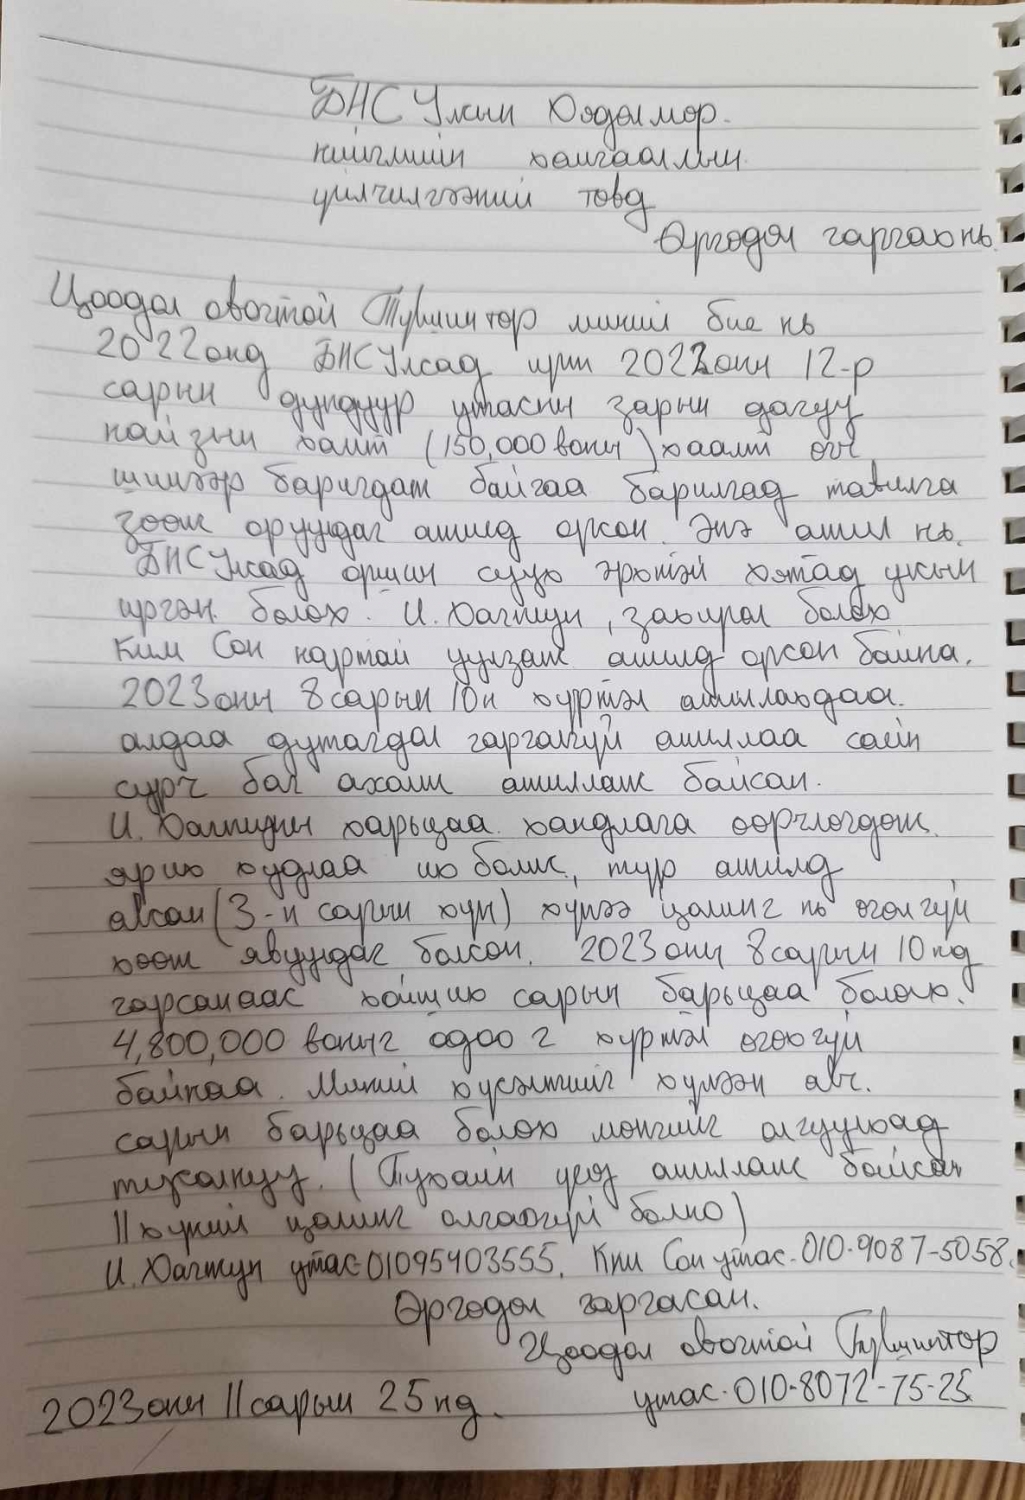 БНСУлсын Хөдөлмөр.
нийгмийн хамгааллын
үйлчилгээний төвд
Өргөдөл гаргах нь.
Цоодол овогтой Түвшинтөр миний бие нь
2022онд БНСУлсад ирж 2022оны 12-р
сарын дундуур утасны зарын дагуу
найзын хамт (150,000 воны) хаалт өгч
шинээр баригдаж байгаа барилгад тавилга
зөөж оруулдаг ажилд орсон. Энэ ажил нь.
БНСУлсад оршин суух эрхтэй хятад улсын
иргэн болох. И. Хагжун, захирал болох
Ким Сон нартай уулзаж ажилд орсон байна.
2023оны 8сарын 10н хүртэл ажиллахдаа.
алдаа дутагдал гаргалгүй ажиллаа сайн
сурч баг ахалж ажиллаж байсан.
И. Хагжуны харьцаа хандлага өөрчлөгдөж.
ярих худлаа их болж, түр ажилд
авсан (3-н сарын хүн) хүнээ цалинг нь өгөлгүй
хөөж явуулдаг болсон. 2023оны 8сарын 10нд
гарсанаас хойших сарын барьцаа болох.
4,800,000 воныг одоо г хүртэл өгөөгүй
байнаа. Миний хүсэлтийг хүлээн авч.
сарын барьцаа болох мөнгийг олгуулхад
тусалнуу. (Тухайн үед ажиллаж байсан
11хүний цалинг олгоогүй болно)
И. Хагжун утас-01095403555. Ким Сон утас-010-9087-5058.
Өргөдөл гаргасан.
Цоодол овогтой Түвшинтөр
2023оны 11сарын 25нд. утас-010-8072-75-25